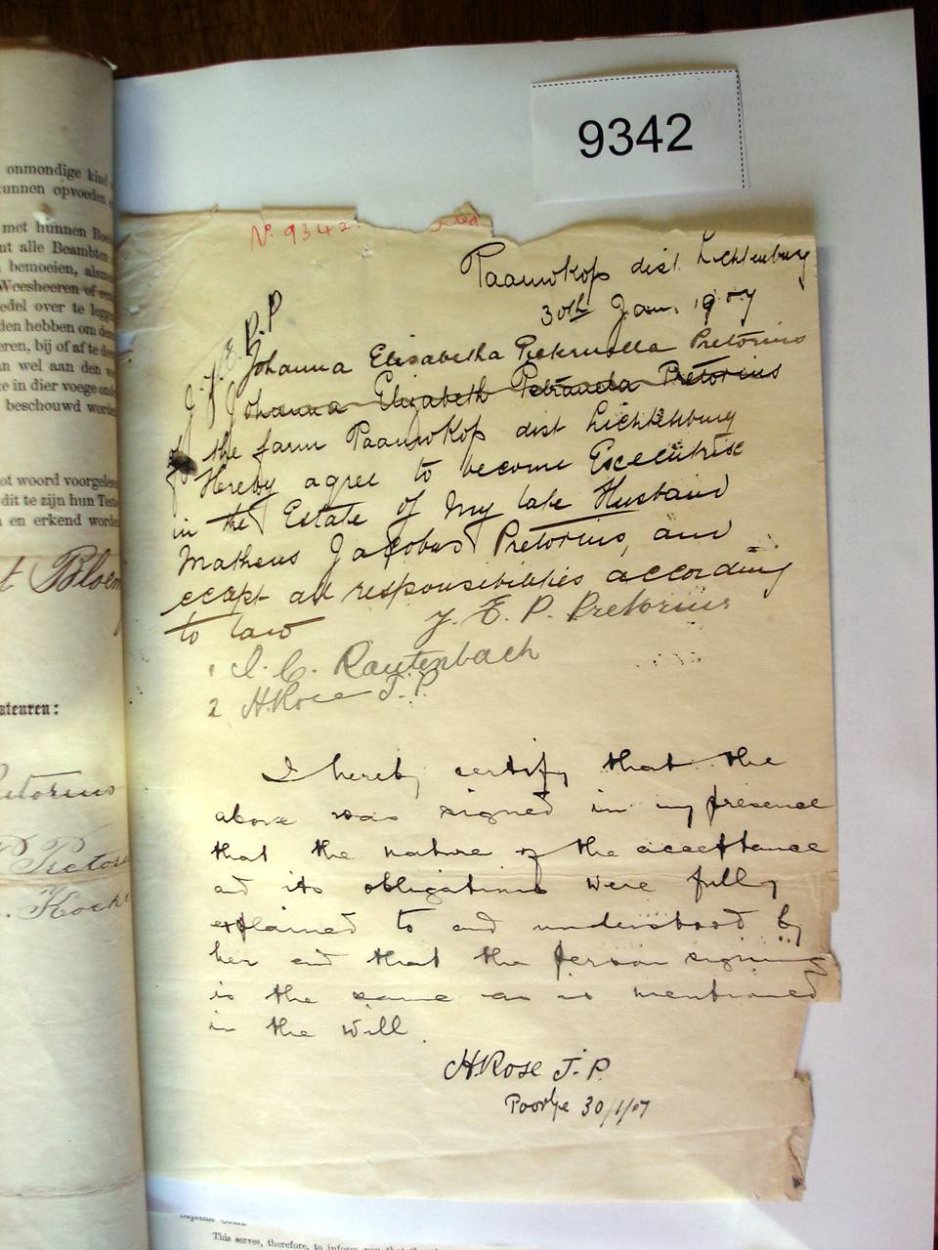 9342
No. 9342
Paauwkop dist. Lichtenburg
30th Jan. 1907
J. E. P. P
Johanna Elisabetha Pieternella Pretorius
I Johanna Elizabeth Petronela Pretorius
of the farm Paauwkop dist Lichtenburg
Hereby agree to become Executrise
in the Estate of My late Husband
Matheus Jacobus Pretorius, and
eccept all responsibilities according
to law
J. E. P. Pretorius
1 I. C. Rautenbach
2 H Rose J. P.
I hereby certify that the
above was signed in my presence
that the nature of the acceptance
and its obligations were fully
explained to and understood by
her and that the person signing
is the same as is mentioned
in the will
H Rose J. P.
Poortje 30/1/07
onmondige kind
kunnen opvoeden
met hunnen
alle Beambten
bemoeien,
Weesheeren of
over te
den hebben om
eren, bij of af te
an wel aan den
ke in dier voege
beschouwd
woord
dit te zijn hun
en erkend
t Bloem
ateuren:
etorius
P Pretor
Kock
This serves, therefore, to inform you that the